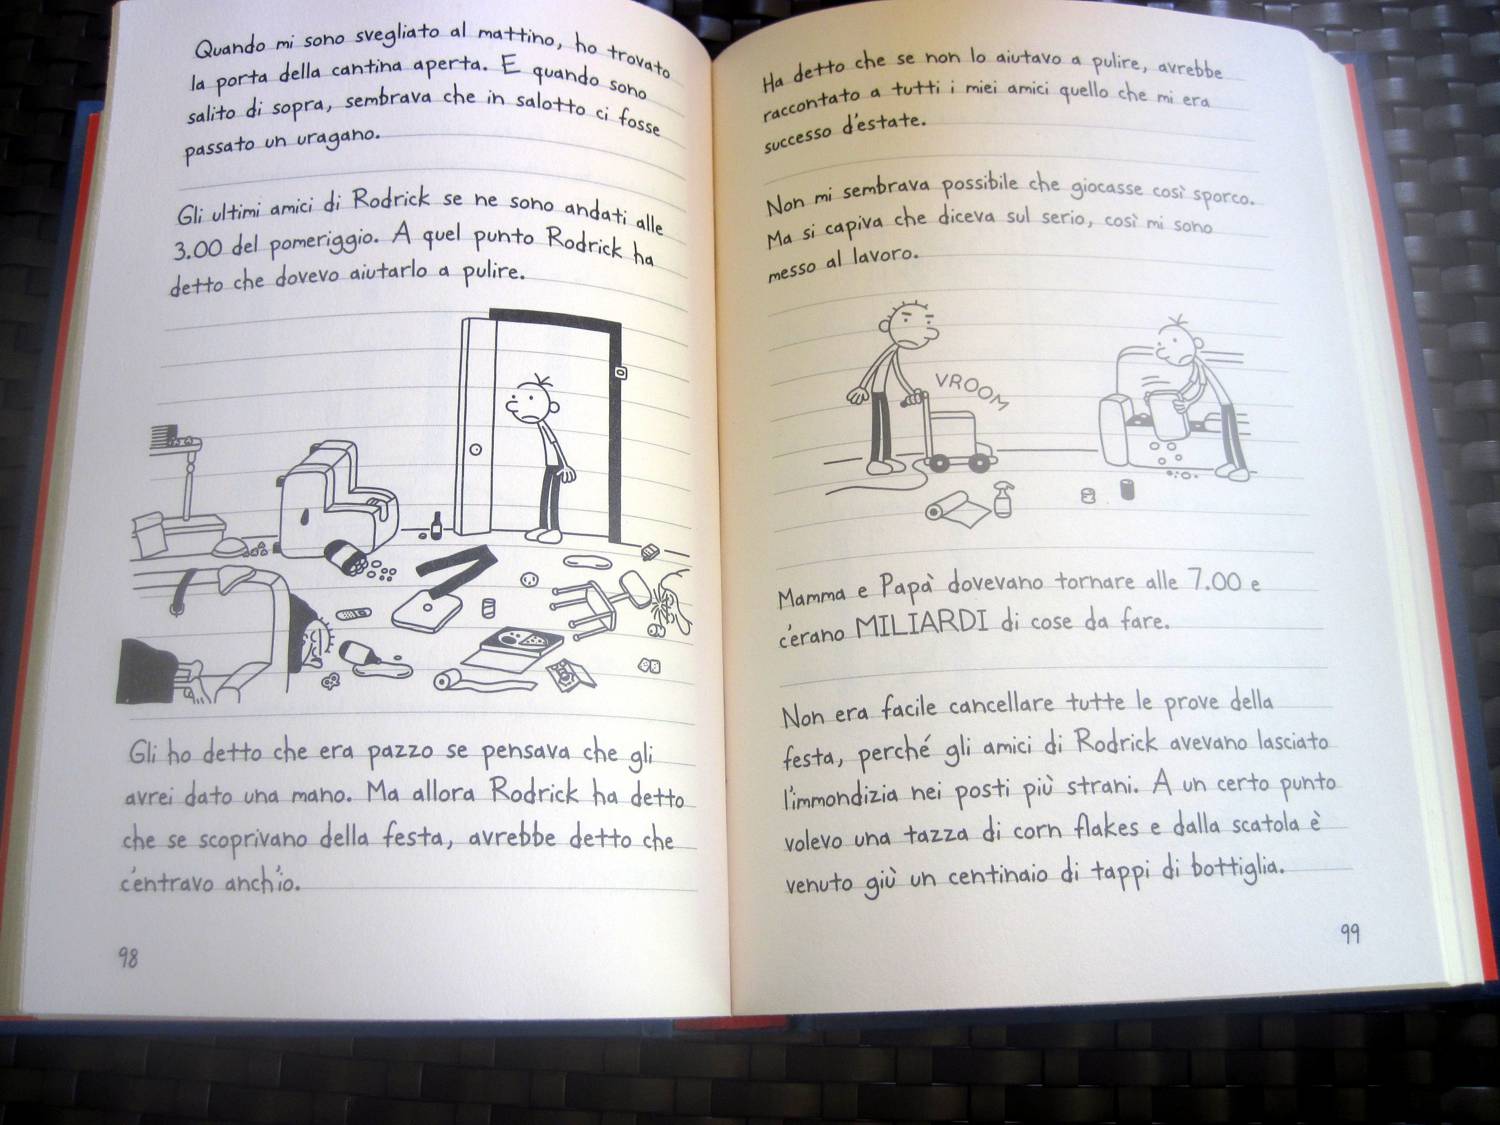 Quando mi sono svegliato al mattino, ho trovato
la porta della cantina aperta. E quando sono
salito di sopra, sembrava che in salotto ci fosse
passato un uragano.
Gli ultimi amici di Rodrick se ne sono andati alle
3.00 del pomeriggio. A quel punto Rodrick ha
detto che dovevo aiutarlo a pulire.
Gli ho detto che era pazzo se pensava che gli
avrei dato una mano. Ma allora Rodrick ha detto
che se scoprivano della festa, avrebbe detto che
c'entravo anch'io.
98
Ha detto che se non lo aiutavo a pulire, avrebbe
raccontato a tutti i miei amici quello che mi era
successo d'estate.
Non mi sembrava possibile che giocasse così sporco.
Ma si capiva che diceva sul serio, così mi sono
messo al lavoro.
VROOM
Mamma e Papà dovevano tornare alle 7.00 e
c'erano MILIARDI di cose da fare.
Non era facile cancellare tutte le prove della
festa, perché gli amici di Rodrick avevano lasciato
l'immondizia nei posti più strani. A un certo punto
volevo una tazza di corn flakes e dalla scatola è
venuto giù un centinaio di tappi di bottiglia.
99